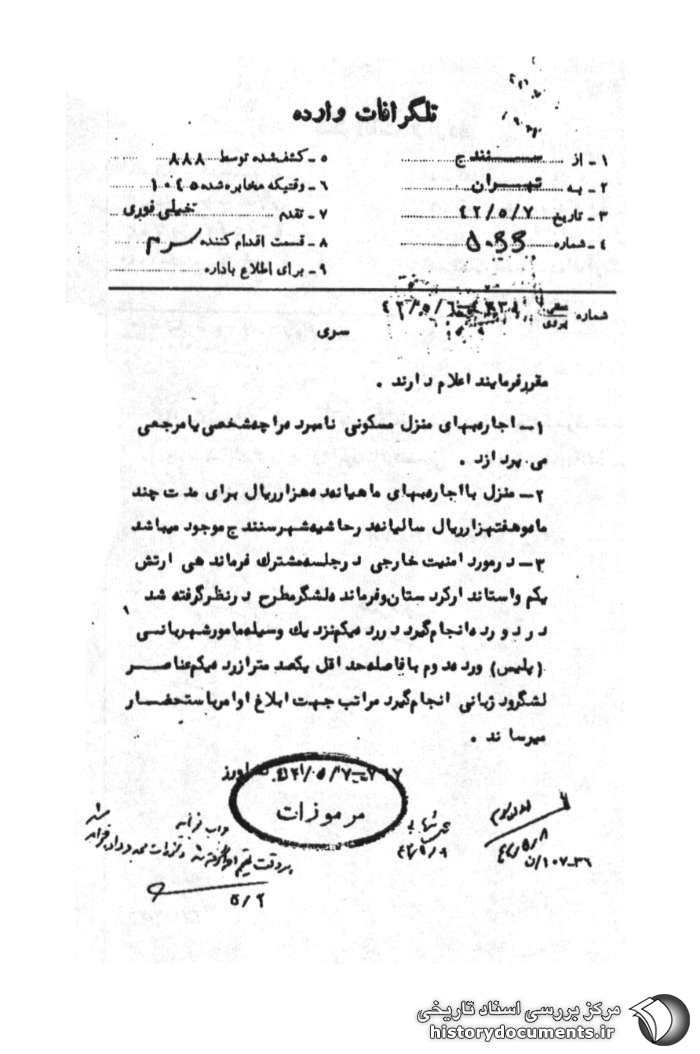 تلگرافات وارده
۱ـ از سنندج
۲ـ به تهران
۳ـ تاریخ ۴۲/۵/۷
۴ـ شماره
۵ـ کشف شده توسط ۸۸۸
۶ـ وقتیکه مخابره شده ۱۰۴۵
۷ـ تقدم خیلی فوری
۸ـ قسمت اقدام کننده
۹ـ برای اطلاع باداره
شماره
سری
مقررفرمایند اعلام دارند .
۱ــ اجاره‌بهای منزل مسکونی نامبرده را چه‌شخصی یا مرجعی
می پردازد .
۲ــ منزل با اجاره‌بهای ماهیانه ده هزار ریال برای مدت چند
ماه و هفت هزار ریال سالیانه در حاشیه شهر سنندج موجود میباشد
۳ــ در مورد امنیت خارجی در جلسه مشترک فرماندهی ارتش
یکم و استاندار کردستان و فرمانده لشگر مطرح در نظر گرفته شد
در دو رده انجام گیرد در رده یکم نزدیک وسیله مامور شهربانی
(پلیس) و رده دوم با فاصله حداقل یکصد متر از رده یکم عناصر
لشگر و ژبانی انجام گیرد مراتب جهت ابلاغ اوامر باستحضار
میرساند .
مرموزات
۴۲/۵/۹
۴۲/۵/۸
مرکز بررسی اسناد تاریخی
historydocuments.ir